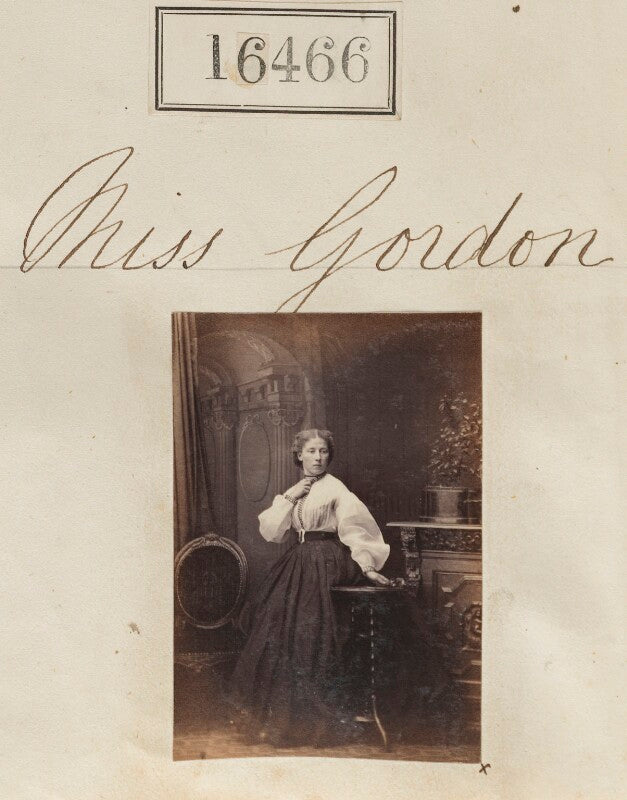 16466
Miss Gordon
x